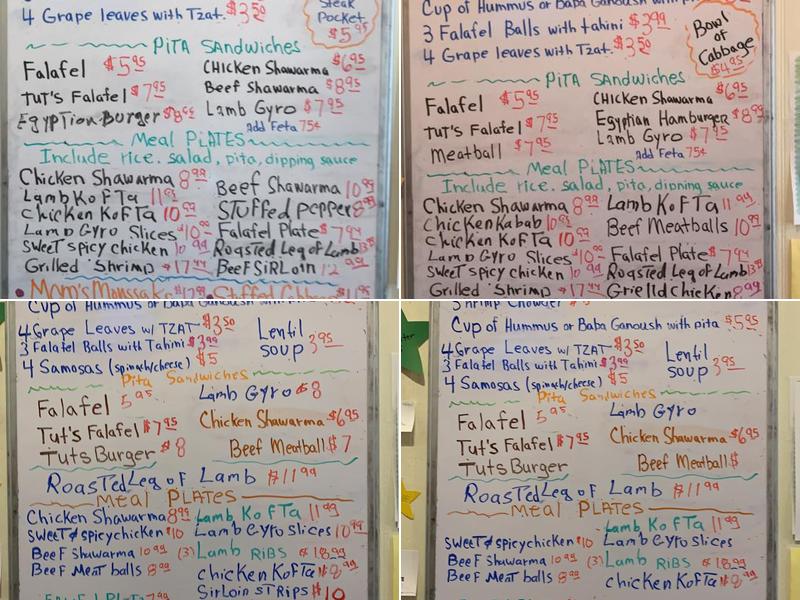 4 Grape leaves with Tzat. $3.50
Steak
Pocket
$5.95
PiTA SANdwicHes
Falafel $5.95
CHicken Shawarma $6.95
Tut's Falafel $7.95
Beef Shawarma $8.95
Egyption Burger $8.50
Lamb Gyro $7.95
add Feta 75¢
Meal PLATES
Include rice. salad, pita, dipping sauce
Chicken Shawarma 8.99
Beef Shawarma 10.99
Lamb KoFTa 11.95
STuffed PePPers
Chicken KoFTa 10.99
Falafel Plate $7.94
Lamb Gyro Slices $10
Roasted Leg of Lamb
Sweet spicy chicken 10.99
BeeF SiRLoin 12.99
Grilled Shrimp $17.44
Mom's Moussaka
Stuffed
Cup of Hummus or Baba Ganoush with
3 Falafel Balls with tahini $3.99
4 Grape leaves with Tzat. $3.50
Bowl
of
Cabbage
$4.95
PiTA SANdwicHes
Falafel $5.95
CHicken Shawarma $6.95
Tut's Falafel $7.95
Egyptian Hamburger $8.99
Meatball $7.95
Lamb Gyro $7.95
add Feta 75¢
Meal PLATES
Include rice. salad, pita, dipping sauce
Chicken Shawarma 8.99
Lamb KoFTa 11.99
Chicken Kabab 10.95
Beef Meatballs 10.99
Chicken KoFTa 10.99
Lamb Gyro Slices $10
Falafel Plate $7.94
Sweet spicy chicken 10.99
Roasted Leg of Lamb
Grilled Shrimp $17.44
Grielld chicken 8.99
Cup of Hummus or Baba Ganoush with pita
4 Grape Leaves w/ TZAT $3.50
3 Falafel Balls with Tahini $3.99
4 Samosas (spinach/cheese) $5
Lentil
soup 3.95
Pita Sandwiches
Falafel 5.95
Lamb Gyro $8
Tut's Falafel $7.95
Chicken Shawarma $6.95
Tuts Burger $8
Beef Meatball $7
RoasTed Leg oF Lamb $11.99
Meal PLATES
Chicken Shawarma 8.99
Lamb KoFTa 11.99
SweeT & spicy chicken $10
Lamb Gyro slices 10.99
BeeF Shawarma 10.99
(3) Lamb RiBS $18.99
BeeF MeaT balls 8.99
chicKen KoFTa $8.99
SirLoin sTRips $10
Shrimp Chowder
Cup of Hummus or Baba Ganoush with pita $5.95
4 Grape Leaves w/ TZAT $3.50
3 Falafel Balls with Tahini $3.99
4 Samosas (spinach/cheese) $5
Lentil
soup 3.95
Pita Sandwiches
Falafel 5.95
Lamb Gyro
Tut's Falafel $7.95
Chicken Shawarma $6.95
Tuts Burger
Beef Meatball $
RoasTed Leg oF Lamb $11.99
Meal PLATES
Lamb KoFTa 11.99
SweeT & spicy chicken $10
Lamb Gyro slices
BeeF Shawarma 10.99
(3) Lamb RiBS $18.99
BeeF MeaT balls 8.99
chicKen KoFTa $8.99